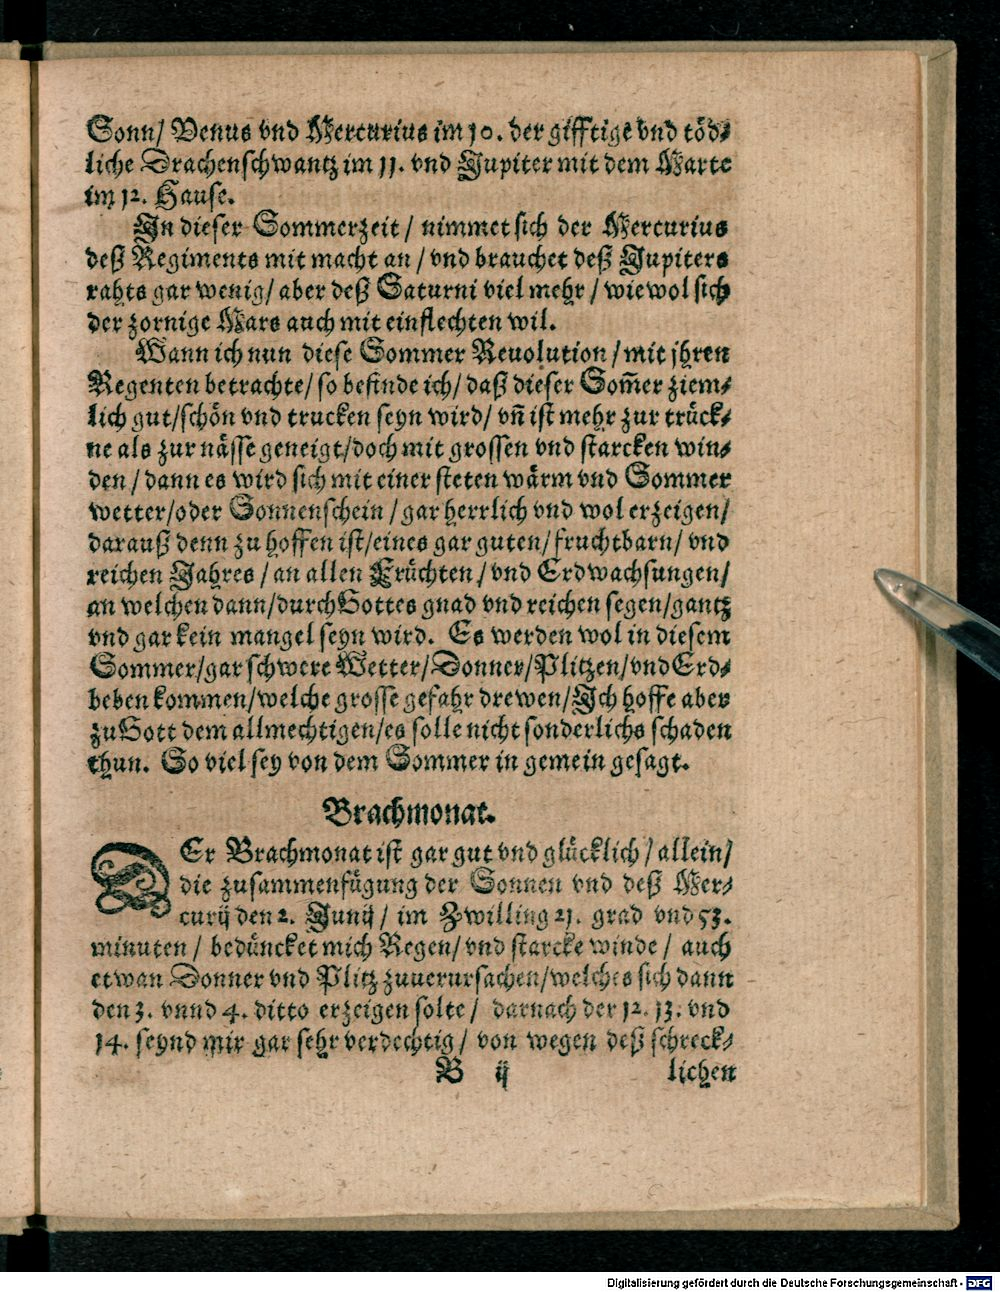 Sonn/ Venus vnd Mercurius im 10. der gifftige vnd töd⸗
liche Drachenschwantz im 11. vnd Jupiter mit dem Marte
im 12. Hause.
In dieser Sommerzeit / nimmet sich der Mercurius
deß Regiments mit macht an / vnd brauchet deß Jupiters
rahts gar wenig/ aber deß Saturni viel mehr / wiewol sich
der zornige Mars auch mit einflechten wil.
Wann ich nun diese Sommer Reuolution / mit jhren
Regenten betrachte/ so befinde ich/ daß dieser Som̃er ziem⸗
lich gut/schön vnd trucken seyn wird/ vñ ist mehr zur trück⸗
ne als zur nässe geneigt/doch mit grossen vnd starcken win⸗
den / dann es wird sich mit einer steten wärm vnd Sommer
wetter/oder Sonnenschein / gar herrlich vnd wol erzeigen/
darauß denn zu hoffen ist/eines gar guten/ fruchtbarn/ vnd
reichen Jahres / an allen Früchten / vnd Erdwachsungen/
an welchen dann/durch Gottes gnad vnd reichen segen/gantz
vnd gar kein mangel seyn wird. Es werden wol in diesem
Sommer/gar schwere Wetter/Donner/Plitzen/vnd Erd⸗
beben kommen/welche grosse gefahr drewen/Ich hoffe aber
zu Gott dem allmechtigen/es solle nicht sonderlichs schaden
thun. So viel sey von dem Sommer in gemein gesagt.
Brachmonat.
DEr Brachmonat ist gar gut vnd glücklich / allein/
die zusammenfügung der Sonnen vnd deß Mer⸗
curij den 2. Junij / im Zwilling 21. grad vnd 53.
minuten / bedüncket mich Regen/ vnd starcke winde / auch
etwan Donner vnd Plitz zuuerursachen/welches sich dann
den 3. vnnd 4. ditto erzeigen solte / darnach der 12. 13. vnd
14. seynd mir gar sehr verdechtig / von wegen deß schreck⸗
B ij lichen
Digitalisierung gefördert durch die Deutsche Forschungsgemeinschaft - DFG